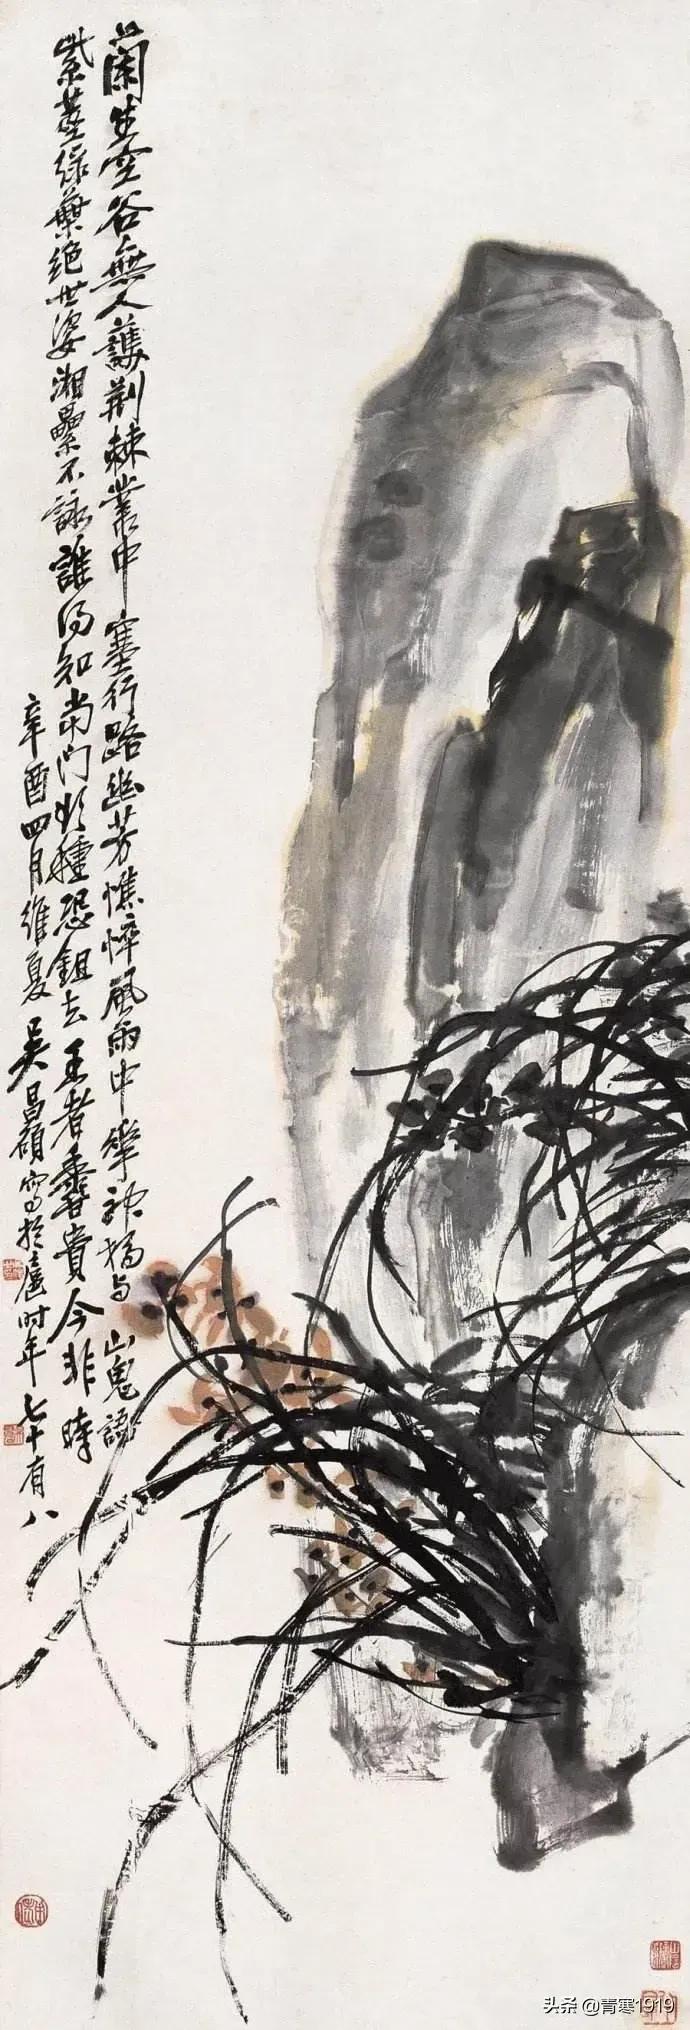 蘭生空谷無人護荆棘叢中塞行路幽芳憔悴風雨中華神猶与山鬼語
紫莖綠葉絕世姿湘纍不詠誰得知當門欲種恐鉏去王者香貴今非時
辛酉四月維夏吳昌碩寫於滬時年七十有八
头条 @青寒1919